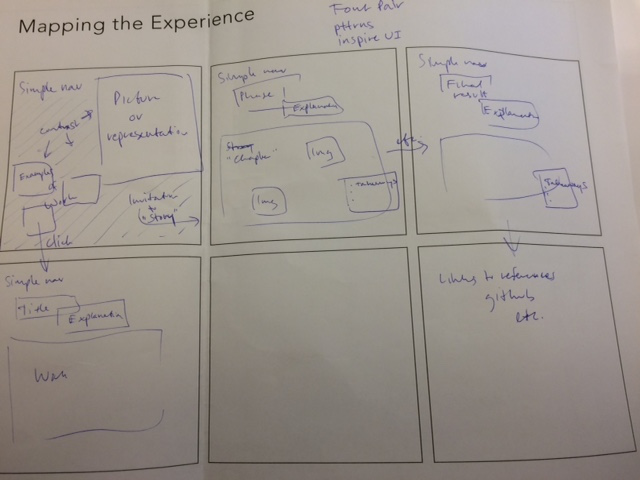 Mapping the Experience
Font Pair
pttrns
inspire UI
Simple nav
Picture
or
representation
contrast
Examples
of
work
Invitation
to
"story"
click
Simple nav
Phase
Explanation
"chapter"
Img
Img
takeaways
Simple nav
Final
result
Explanation
takeaways
Simple nav
Title
Explanation
Work
Links to references
github
etc.